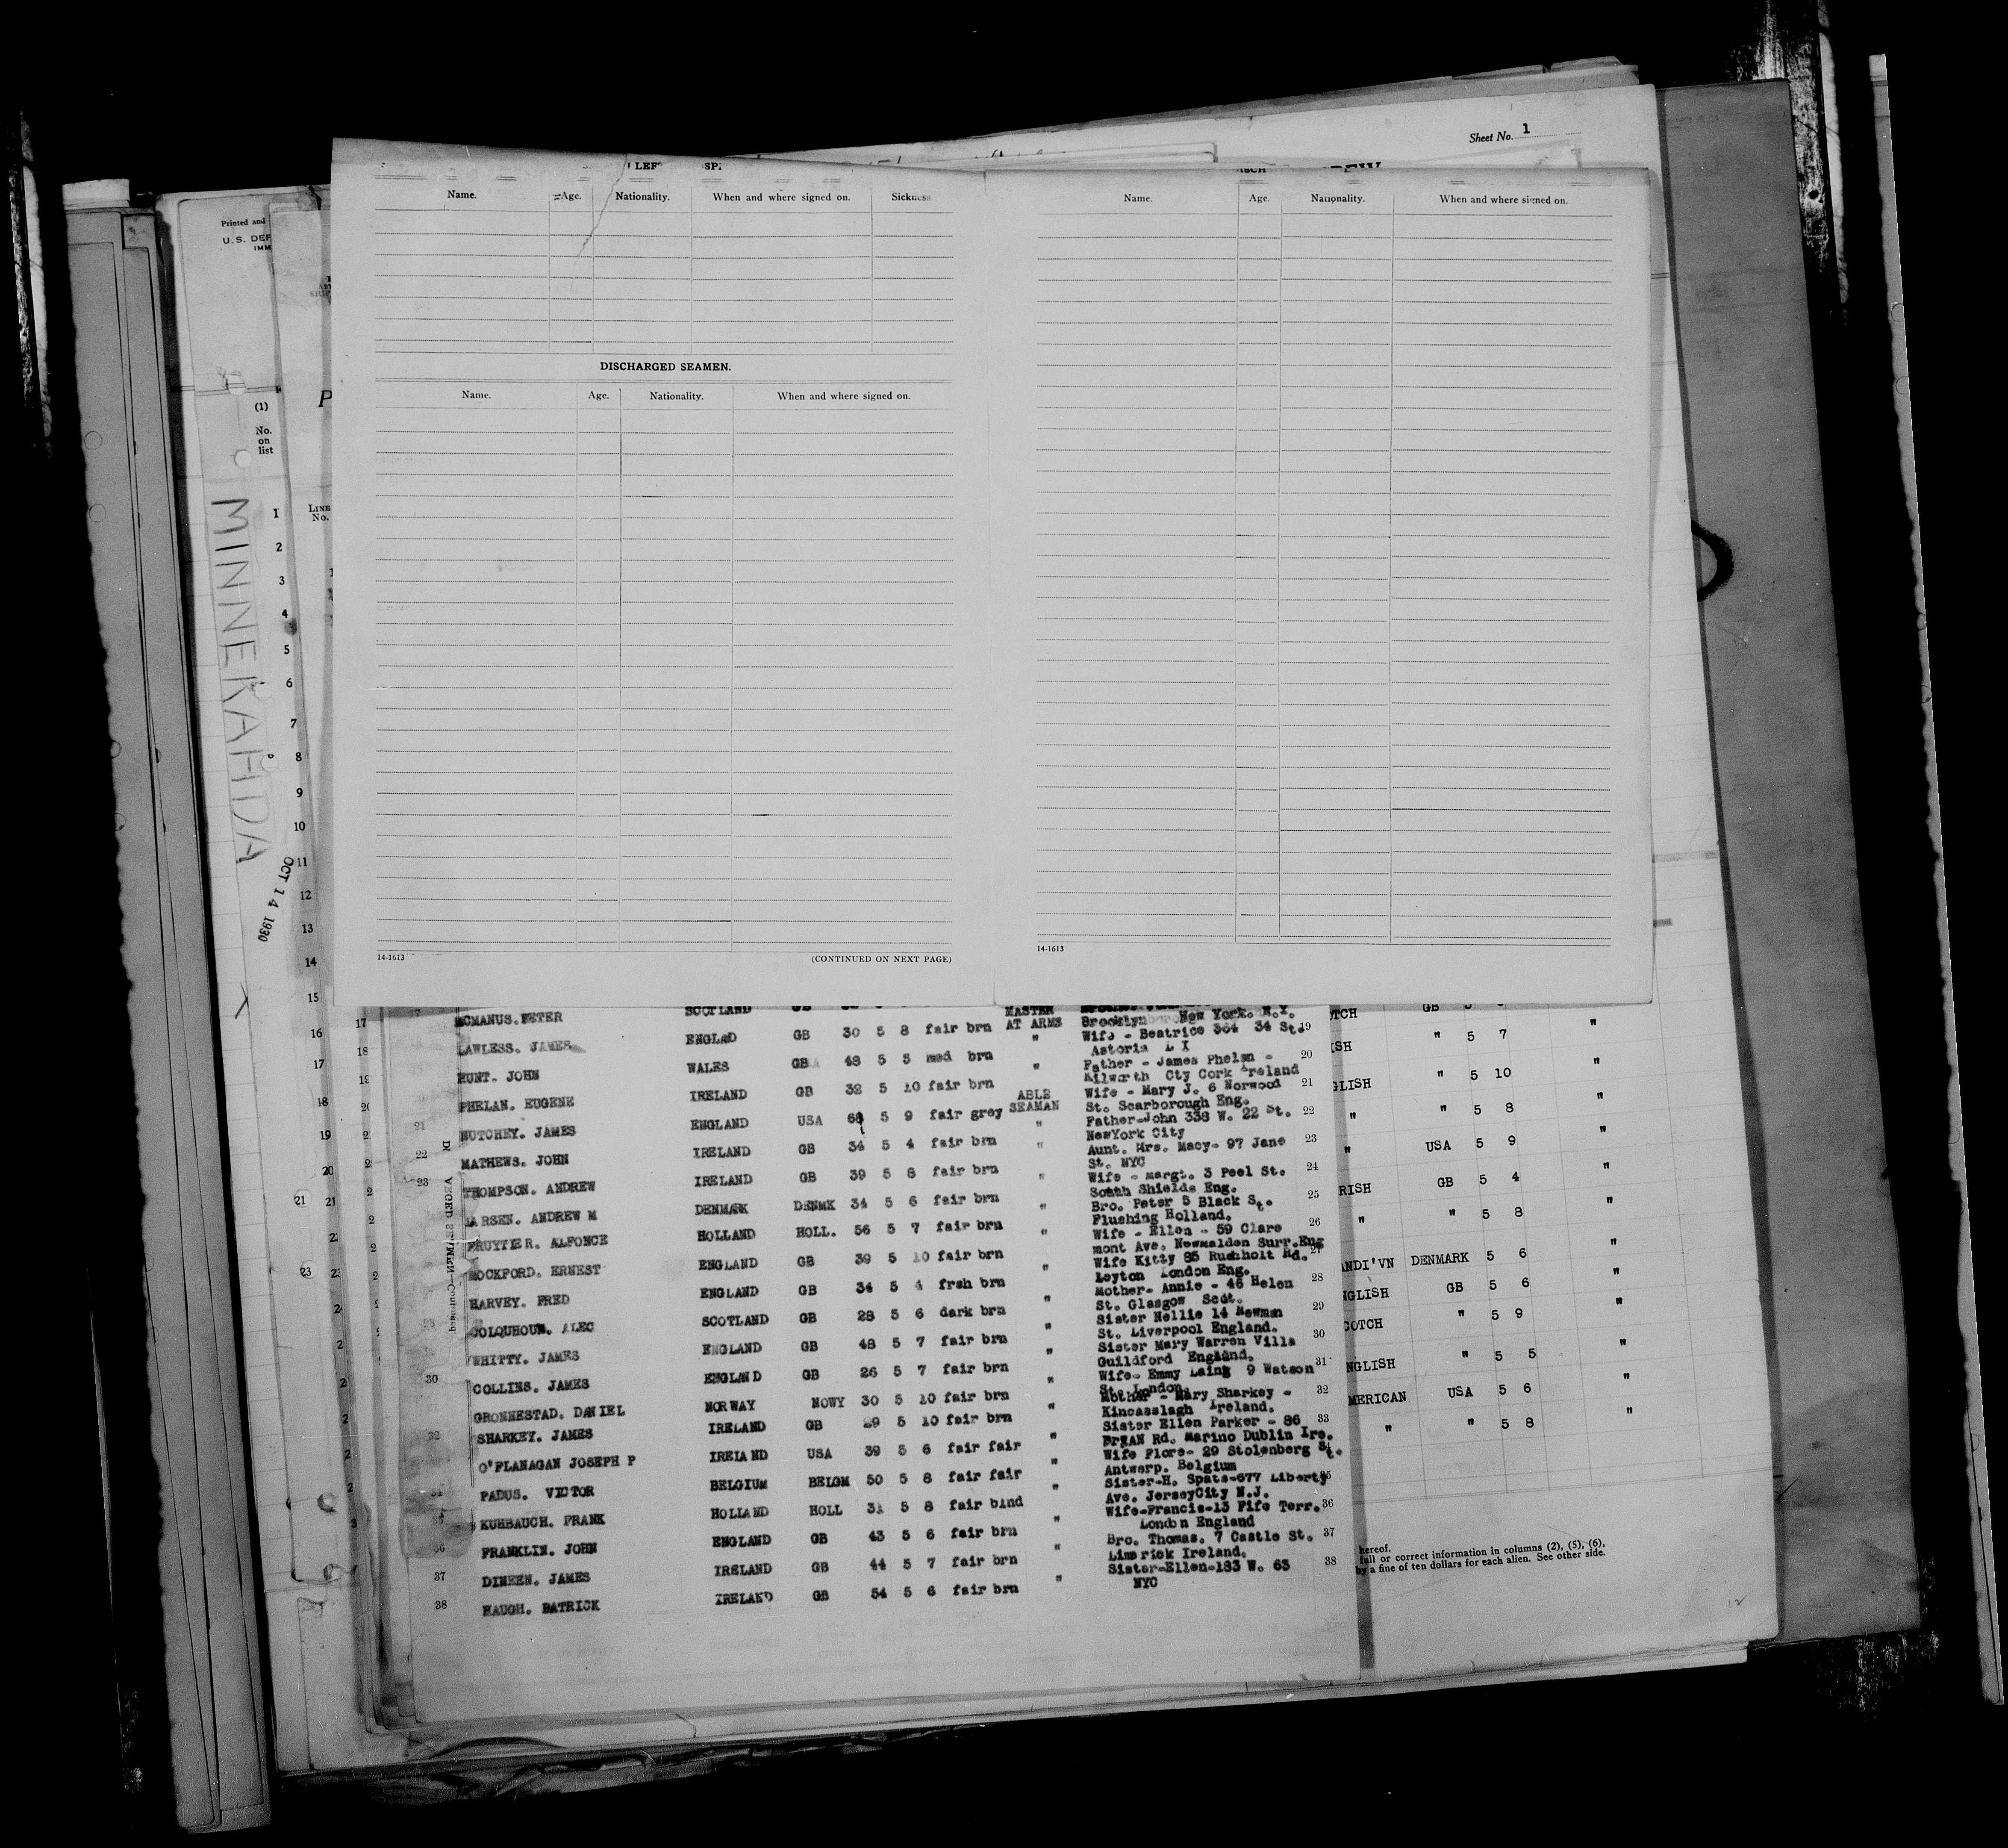 Sheet No. 1
Printed and
U. S. DEP
IMM
Name. Age. Nationality. When and where signed on. Sickness
Name. Age. Nationality. When and where signed on.
DISCHARGED SEAMEN.
Name. Age. Nationality. When and where signed on.
(1)
No.
on
list
P
LINE
No.
MINNEKAHDA
OCT 14 1930
1
2
3
4
5
6
7
8
9
10
11
12
13
14
15
16
17
18
19
20
21 21
23
14-1613 (CONTINUED ON NEXT PAGE)
14-1613
MCMANUS. PETER SCOTLAND MASTER
AT ARMS Brooklyn New York. N.Y.
LAWLESS. JAMES ENGLAD GB 30 5 8 fair brn " Wife - Beatrice 364 34 St. 19
Astoria L I
HUNT. JOHN WALES GB 48 5 5 med brn " Father - James Phelan - 20
Kilworth Cty Cork Ireland
PHELAN. EUGENE IRELAND GB 32 5 10 fair brn ABLE
SEAMAN Wife - Mary J. 6 Norwood 21
St. Scarborough Eng.
NUTCHEY. JAMES ENGLAND USA 68 5 9 fair grey " Father-John 338 W. 22 St. 22
NewYork City
MATHEWS. JOHN IRELAND GB 34 5 4 fair brn " Aunt. Mrs. Macy- 97 Jane 23
St. NYC
THOMPSON. ANDREW IRELAND GB 39 5 8 fair brn " Wife - Margt. 3 Peel St. 24
South Shields Eng.
LARSEN. ANDREW M DENMARK DENMK 34 5 6 fair brn " Bro. Peter 5 Black St. 25
Flushing Holland.
FRUYTIER. ALFONCE HOLLAND HOLL. 56 5 7 fair brn " Wife - Ellen - 59 Clare 26
mont Ave. Newmalden Surr.Eng
ROCKFORD. ERNEST ENGLAND GB 39 5 10 fair brn " Wife Kitty 85 Ruchholt Rd. 27
Leyton London Eng.
HARVEY. FRED ENGLAND GB 34 5 4 frsh brn " Mother- Annie - 46 Helen 28
St. Glasgow Scot.
COLQUHOUN. ALEC SCOTLAND GB 28 5 6 dark brn " Sister Nellie 14 Newman 29
St. Liverpool England.
WHITTY. JAMES ENGLAND GB 48 5 7 fair brn " Sister Mary Warren Villa 30
Guildford England.
30 COLLINS. JAMES ENGLAND GB 26 5 7 fair brn " Wife- Emmy Laing 9 Watson 31
St. London.
GRONNESTAD. DANIEL NORWAY NOWY 30 5 10 fair brn " Mother - Mary Sharkey - 32
Kincasslagh Ireland.
32 SHARKEY. JAMES IRELAND GB 29 5 10 fair brn " Sister Ellen Parker - 86 33
BryAN Rd. Marino Dublin Ire.
O'FLANAGAN JOSEPH P IRELAND USA 39 5 6 fair fair " Wife Flore- 29 Stolenberg St.
Antwerp. Belgium
34 PADUS. VICTOR BELGIUM BELGM 50 5 8 fair fair " Sister-H. Spats-677 Liberty 35
Ave. JerseyCity N.J.
35 KUHBAUCH. FRANK HOLLAND HOLL 31 5 8 fair blnd " Wife-Francis-13 Fife Terr. 36
London England
36 FRANKLIN. JOHN ENGLAND GB 43 5 6 fair brn " Bro. Thomas. 7 Castle St. 37
Limerick Ireland.
37 DINEEN. JAMES IRELAND GB 44 5 7 fair brn " Sister-Ellen-183 W. 63 38
NYC
38 HAUGH. PATRICK IRELAND GB 54 5 6 fair brn "
TCH GB 5
ISH " 5 7 "
GLISH " 5 10 "
" " 5 8 "
" USA 5 9 "
RISH GB 5 4 "
" " 5 8 "
ANDI'VN DENMARK 5 6 "
NGLISH GB 5 6 "
COTCH " 5 9 "
NGLISH " 5 5 "
MERICAN USA 5 6 "
" " 5 8 "
hereof.
full or correct information in columns (2), (5), (6),
by a fine of ten dollars for each alien. See other side.